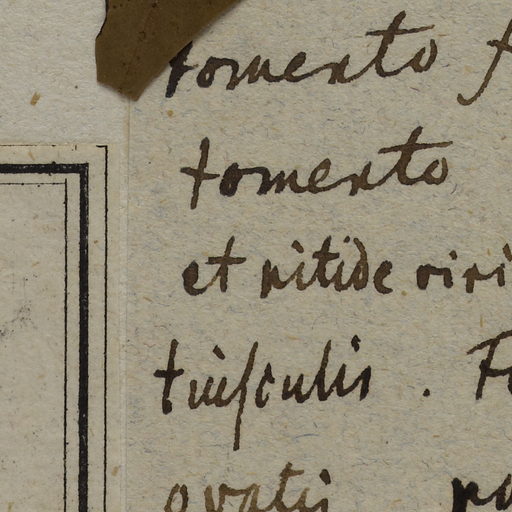 tomento
tomento
et nitide viri
tuisculis . F
ovatis pa